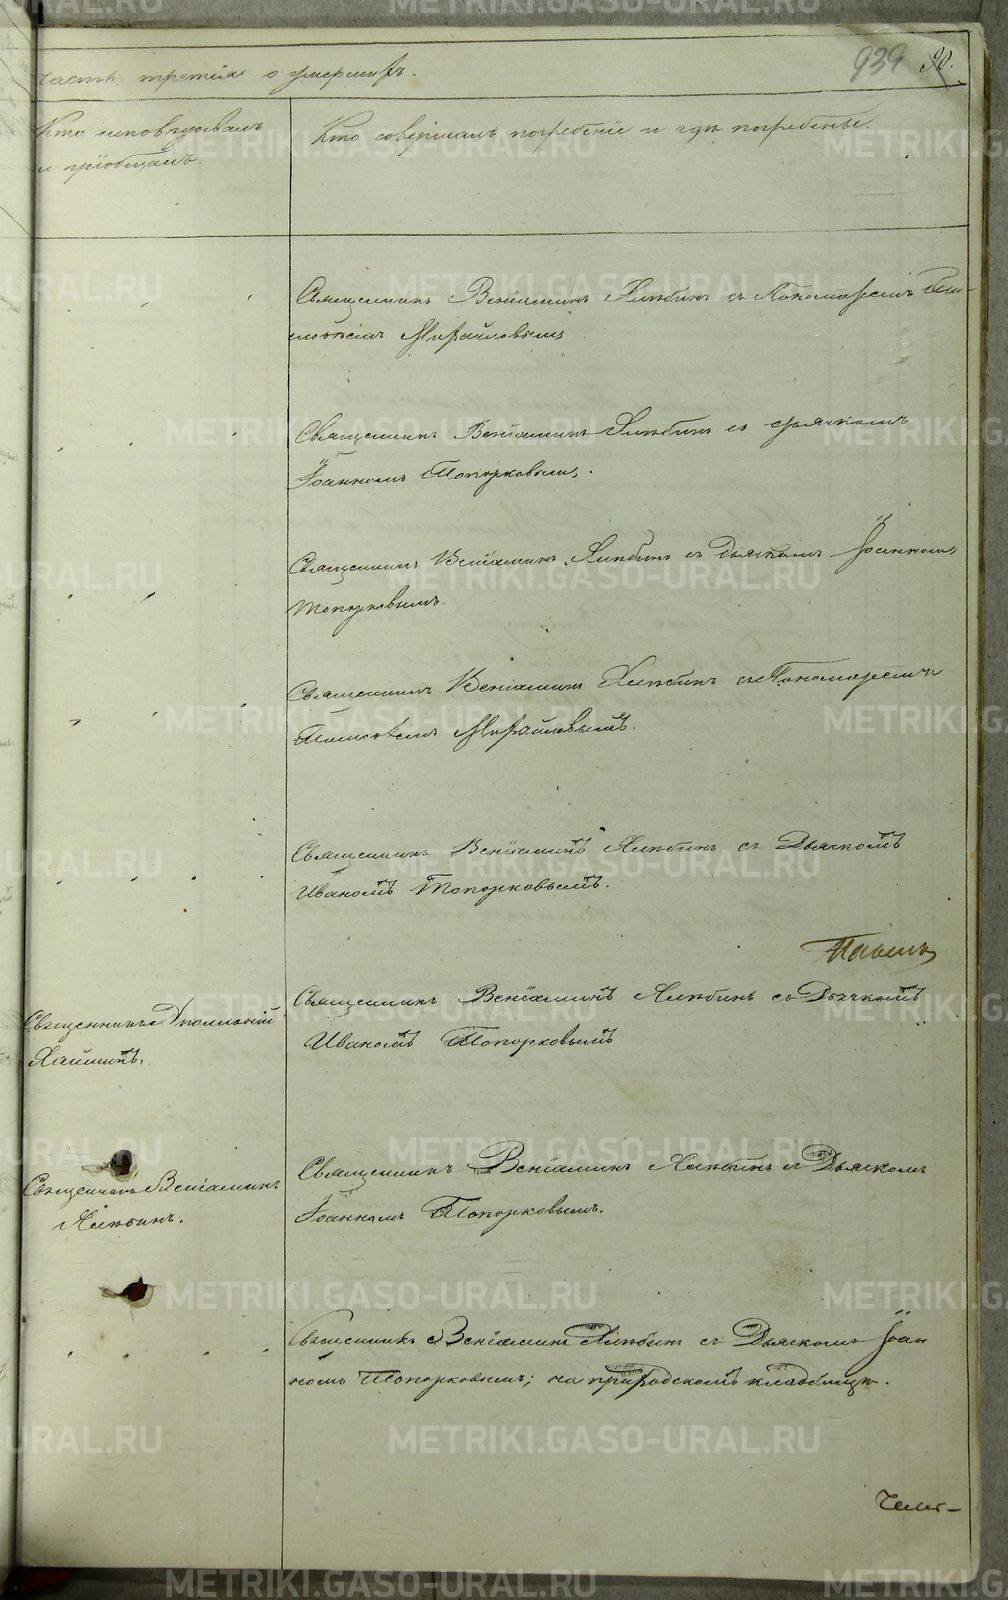 часть третія о умершихъ.
939 90.
Кто исповѣдывалъ
и пріобщалъ.
Кто совершалъ погребеніе и гдѣ погребены.
Священникъ Веніаминъ Хлѣбинъ съ Пономаремъ
Михайловымъ
Священникъ Веніаминъ Хлѣбинъ съ дьячкомъ
Іоанномъ Топорковымъ.
Священникъ Веніаминъ Хлѣбинъ съ Дьячкомъ Іоанномъ
Топорковымъ.
Священникъ Веніаминъ Хлѣбинъ съ Пономаремъ
Михайловымъ.
Священникъ Веніаминъ Хлѣбинъ съ Дьячкомъ
Иваномъ Топорковымъ.
Священникъ
Священникъ Веніаминъ Хлѣбинъ съ Дьячкомъ
Иваномъ Топорковымъ
Священникъ Веніаминъ
Хлѣбинъ.
Священникъ Веніаминъ Хлѣбинъ съ Дьячкомъ
Іоанномъ Топорковымъ.
Священникъ Веніаминъ Хлѣбинъ съ Дьячкомъ Іоан
номъ Топорковымъ; на приходскомъ кладбищѣ.
METRIKI.GASO-URAL.RU